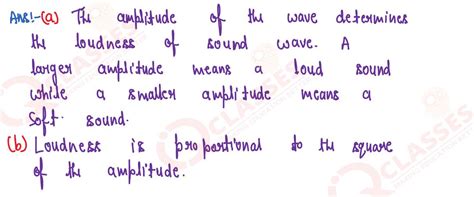 Ans:-(a) The amplitude of the wave determines
the loudness of sound wave. A
larger amplitude means a loud sound
while a smaller amplitude means a
soft sound.
(b) Loudness is proportional to the square
of the amplitude.
CLASSES
CLASSES